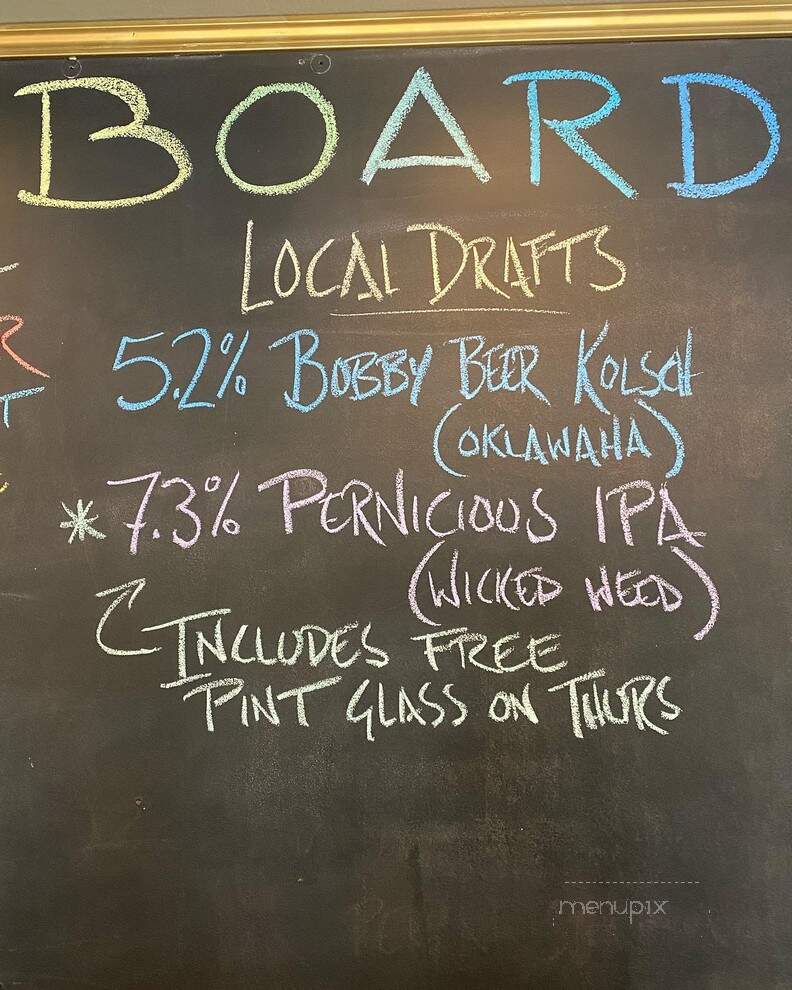 BOARD
LOCAL DRAFTS
5.2% BOBBY BEER KOLSCH
(OKLAWAHA)
* 7.3% PERNICIOUS IPA
(WICKED WEED)
INCLUDES FREE
PINT GLASS ON THURS
menupix